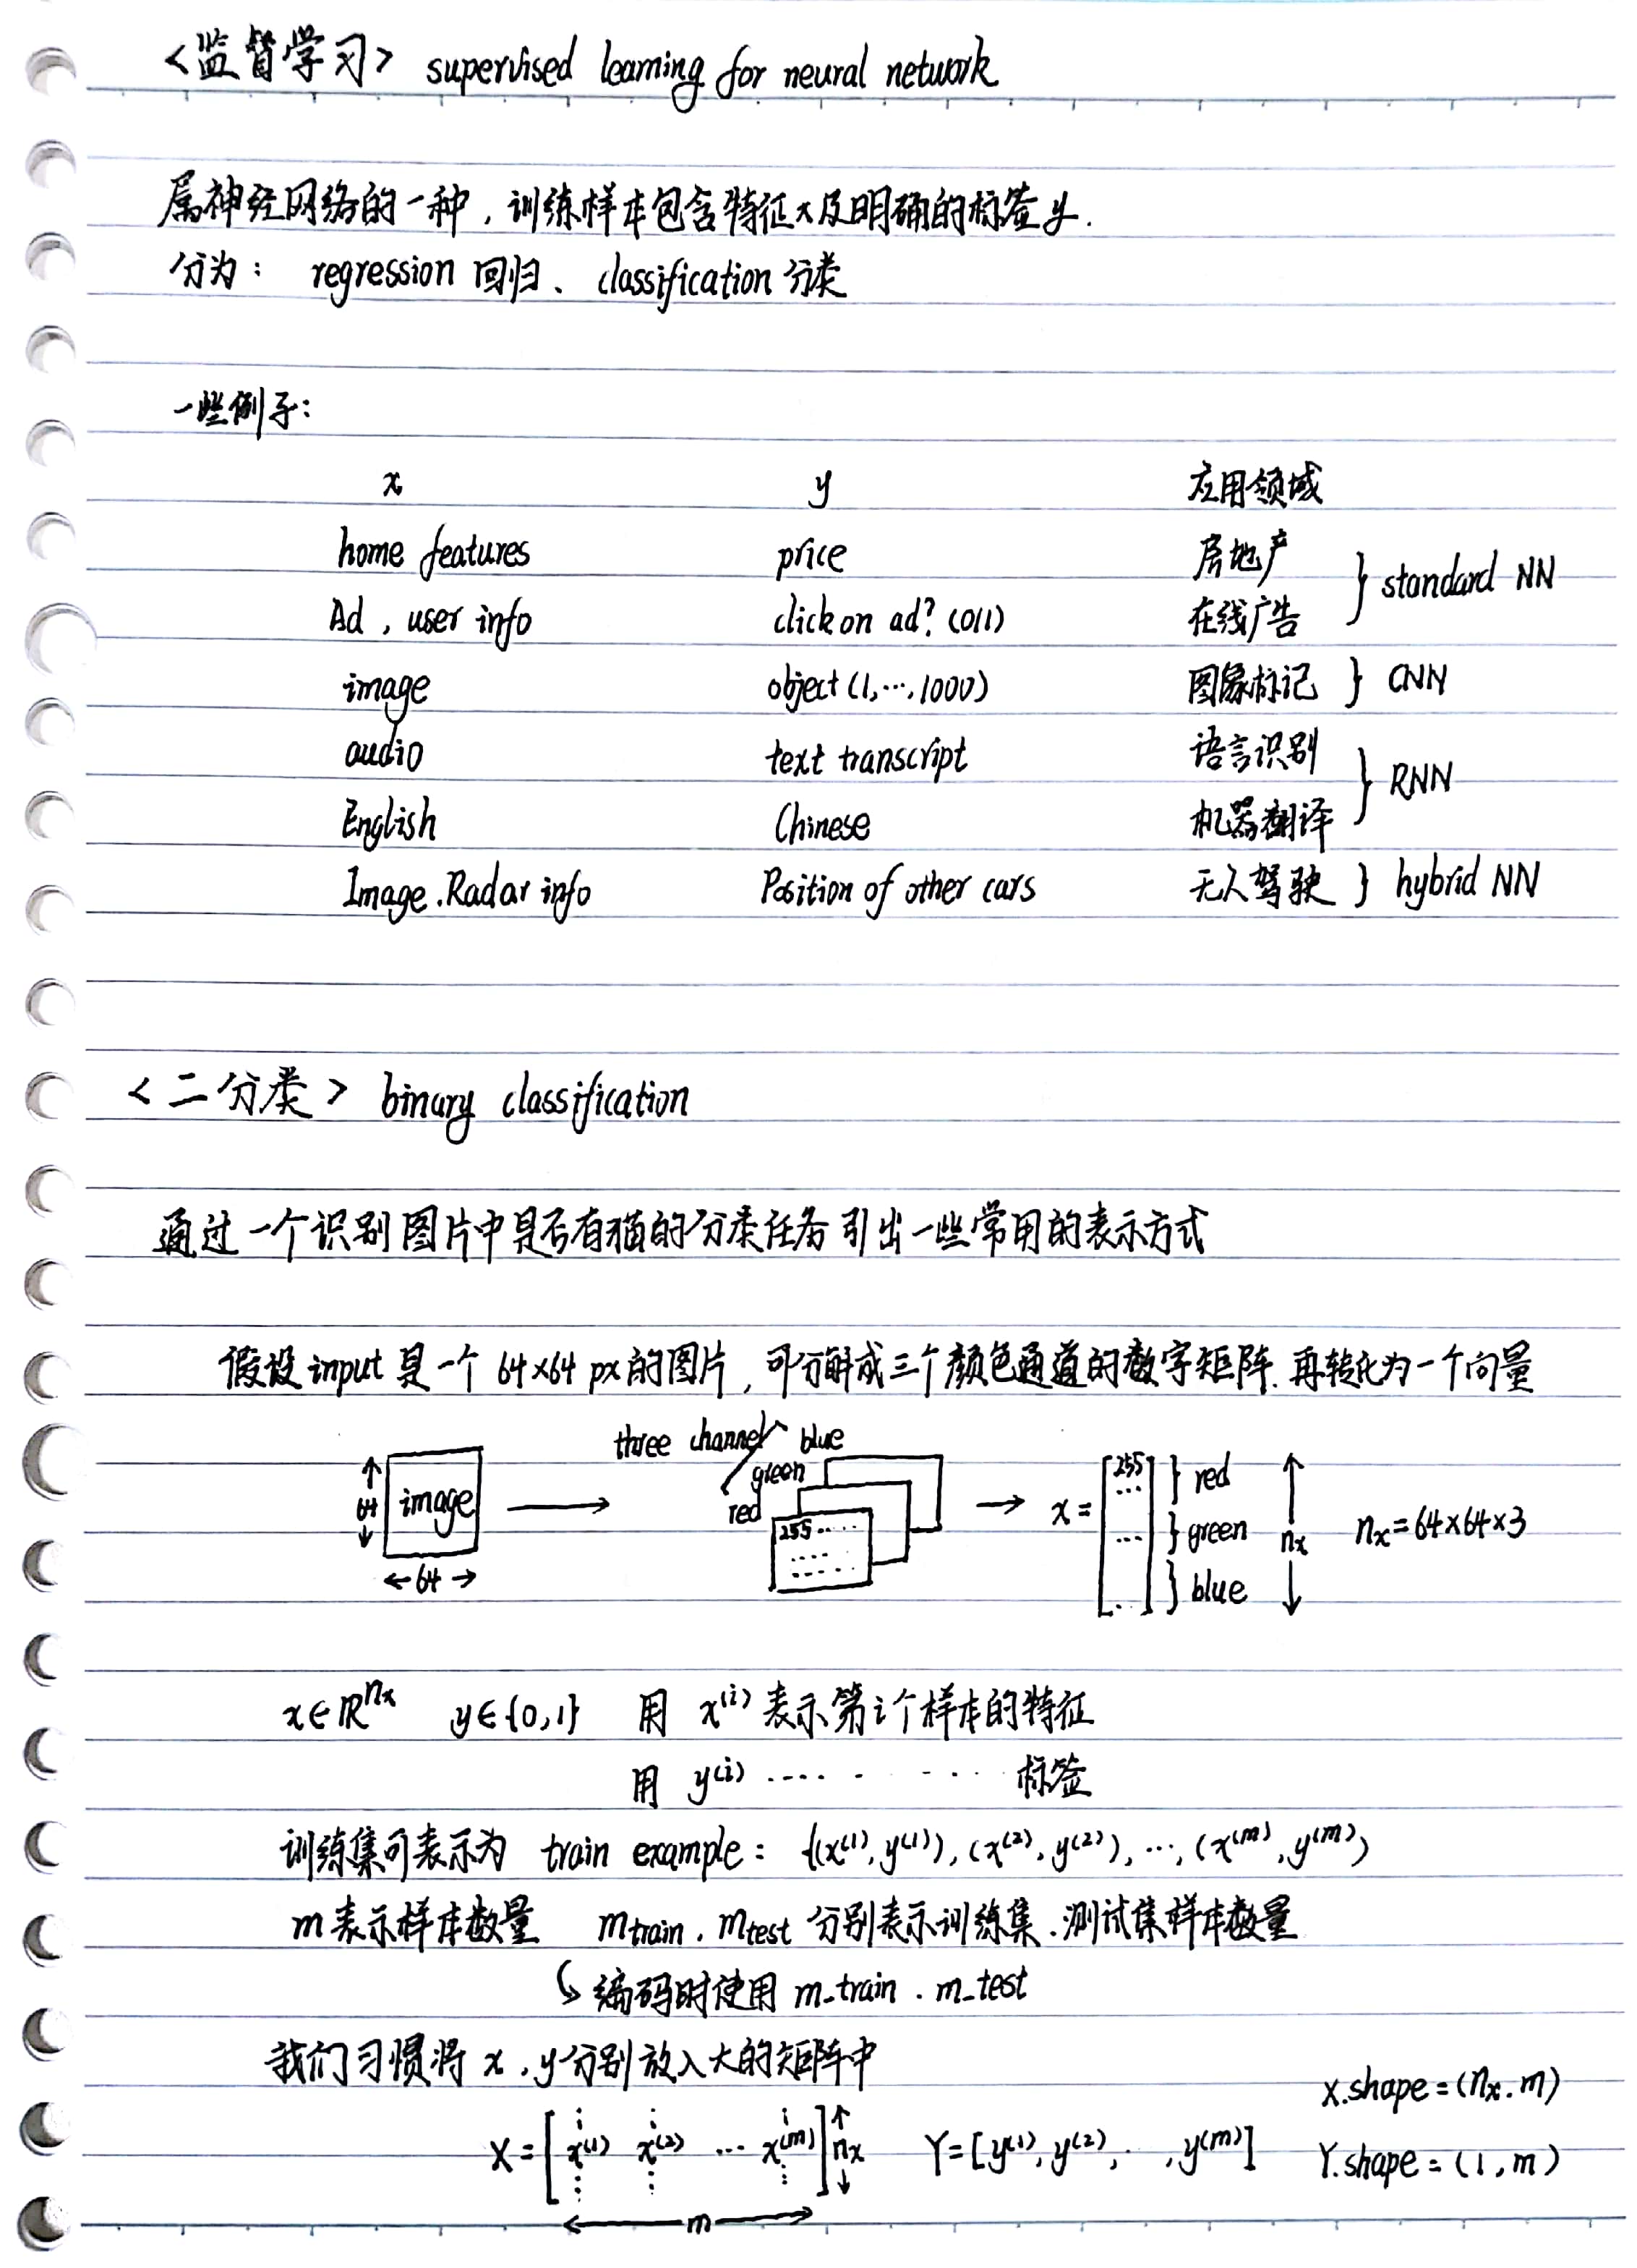 <监督学习> supervised learning for neural network
属神经网络的一种，训练样本包含特征x及明确的标签y.
分为： regression 回归、classification 分类
一些例子：
x y 应用领域
home features price 房地产 } standard NN
Ad , user info click on ad? (0/1) 在线广告
image object (1,…,1000) 图象标记 } CNN
audio text transcript 语言识别 } RNN
English Chinese 机器翻译
Image.Radar info Position of other cars 无人驾驶 } hybrid NN
<二分类> binary classification
通过一个识别图片中是否有猫的分类任务引出一些常用的表示方式
假设input是一个 64×64 px的图片，可分解成三个颜色通道的数字矩阵.再转化为一个向量
three channel blue
green
red
64 image
255 ....
64
x = [255 ... ... .] } red } green } blue nx nx = 64×64×3
x∈ℝ^nx y∈{0,1} 用 x⁽ⁱ⁾ 表示第i个样本的特征
用 y⁽ⁱ⁾ ········ 标签
训练集可表示为 train example： {(x⁽¹⁾, y⁽¹⁾), (x⁽²⁾, y⁽²⁾), …, (x⁽ᵐ⁾, y⁽ᵐ⁾)
m表示样本数量 mtrain . mtest 分别表示训练集.测试集样本数量
↳ 编码时使用 m_train . m_test
我们习惯将 x , y分别放入大的矩阵中
X.shape = (nx. m)
X = [x⁽¹⁾ x⁽²⁾ … x⁽ᵐ⁾] nx Y = [y⁽¹⁾, y⁽²⁾, · , y⁽ᵐ⁾] Y.shape = (1, m)
m